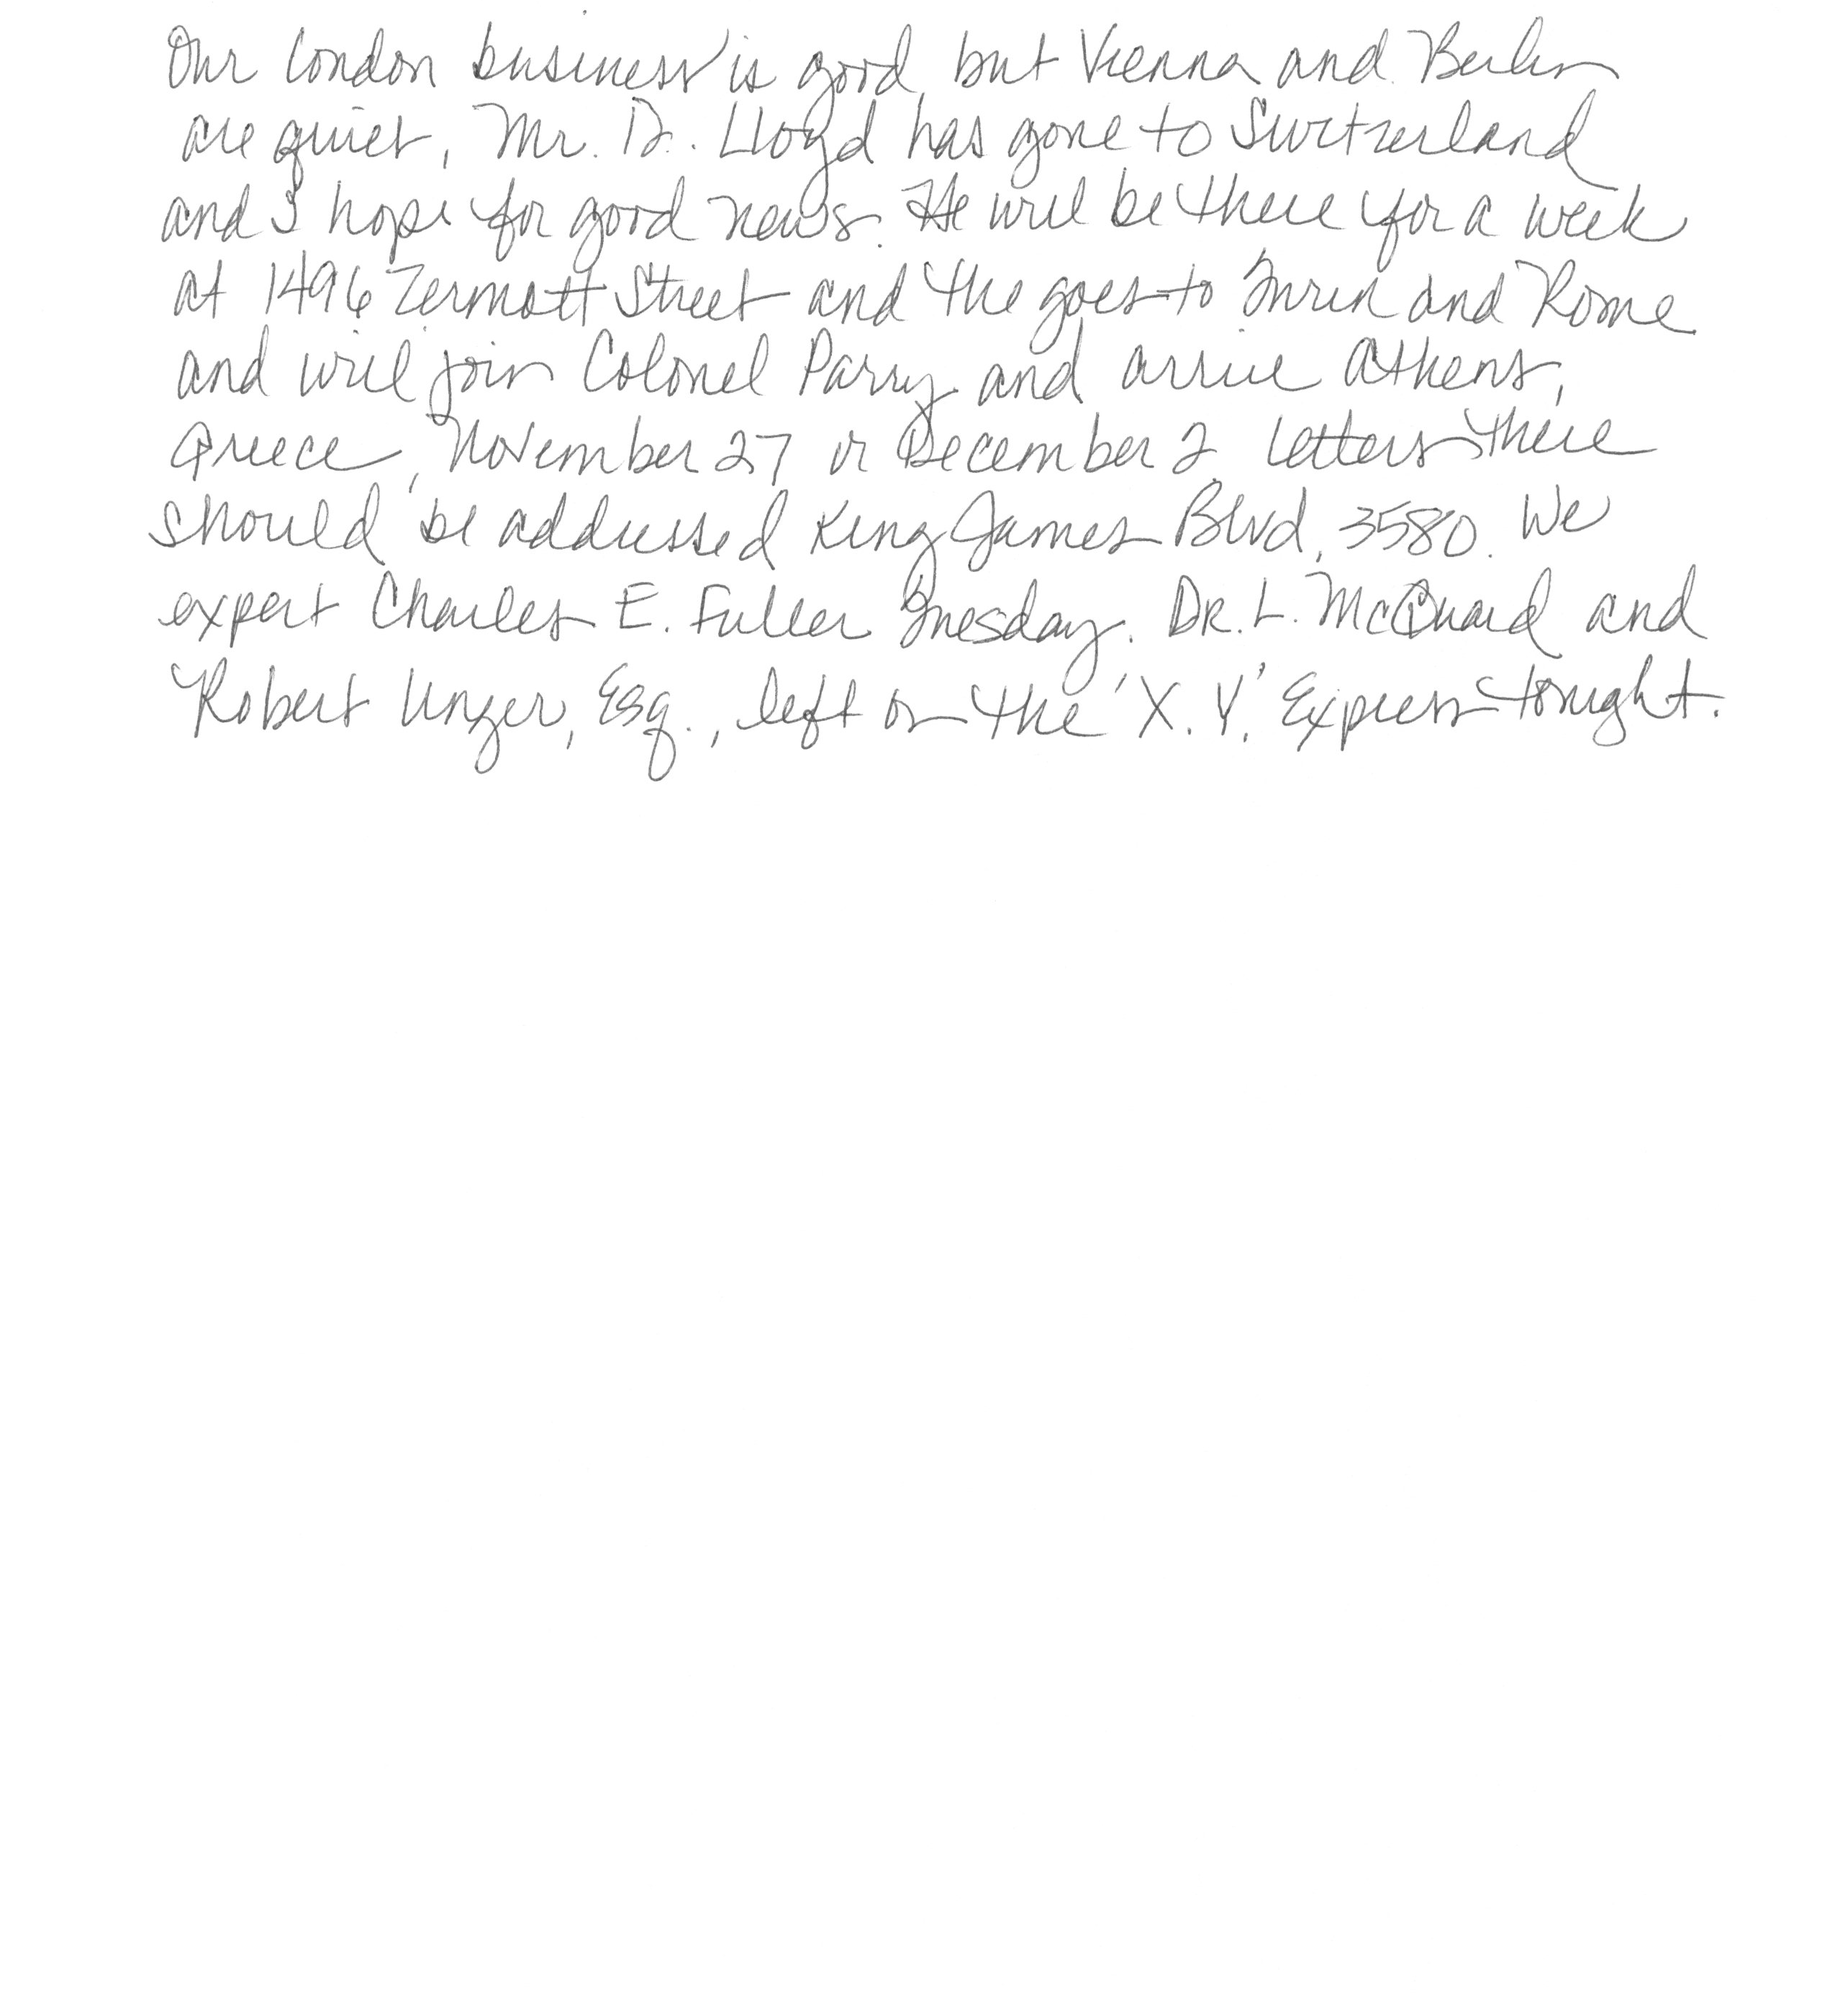 Our London business is good, but Vienna and Berlin
are quiet. Mr. D. Lloyd has gone to Switzerland
and I hope for good news. He will be there for a week
at 1496 Zermott Street and the goes to Turin and Rome
and will join Colonel Parry and arrive Athens,
Greece, November 27 or December 2. Letters there
should be addressed King James Blvd, 3580. We
expect Charles E. Fuller Tuesday. DR. L. McQuaid and
Robert Unger, Esq., left on the 'X. Y.' Express tonight.